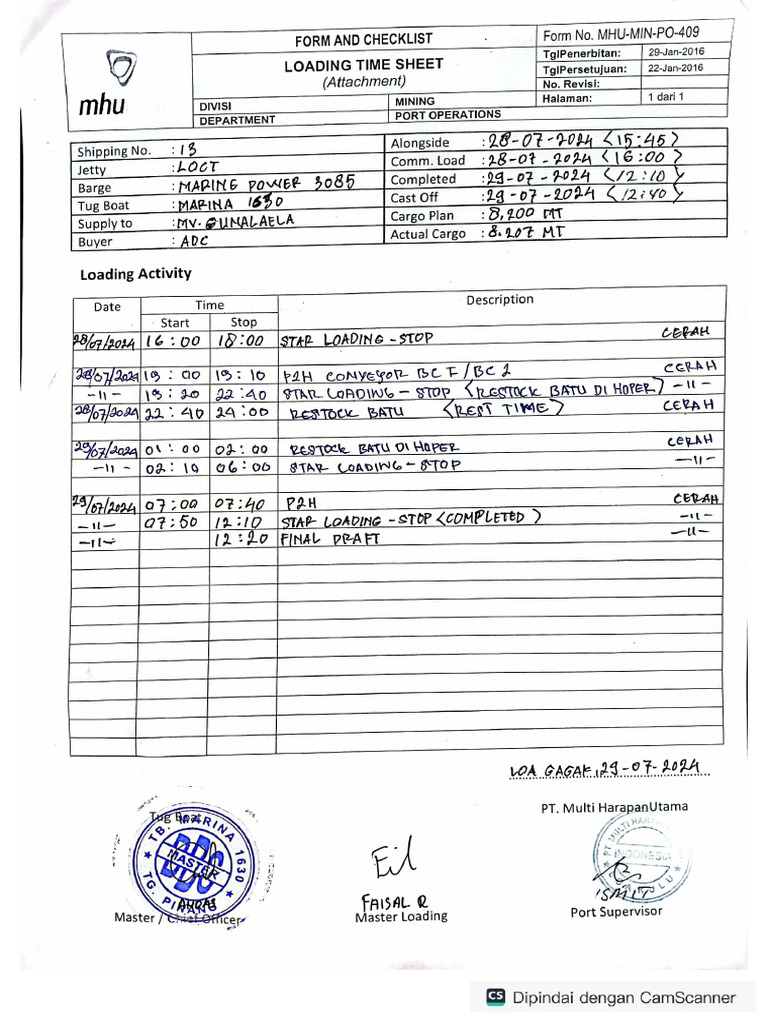 mhu
FORM AND CHECKLIST
LOADING TIME SHEET
(Attachment)
DIVISI MINING
DEPARTMENT PORT OPERATIONS
Form No. MHU-MIN-PO-409
TglPenerbitan: 29-Jan-2016
TglPersetujuan: 22-Jan-2016
No. Revisi:
Halaman: 1 dari 1
Shipping No. : 13
Jetty : LOCT
Barge : MARINE POWER 3085
Tug Boat : MARINA 1630
Supply to : MV. GUNALAELA
Buyer : ADC
Alongside : 28-07-2024 (15:45)
Comm. Load : 28-07-2024 (16:00)
Completed : 29-07-2024 (12:10)
Cast Off : 29-07-2024 (12:40)
Cargo Plan : 8,200 MT
Actual Cargo : 8.207 MT
Loading Activity
Date Time Description
Start Stop
28/07/2024 16:00 18:00 STAR LOADING - STOP CERAH
28/07/2024 19:00 19:10 P2H CONVEYOR BC F/BC 2 CERAH
-11- 19:20 22:40 STAR LOADING - STOP (RESTOCK BATU DI HOPER) -11-
28/07/2024 22:40 24:00 RESTOCK BATU (REST TIME) CERAH
29/07/2024 01:00 02:00 RESTOCK BATU DI HOPER CERAH
-11- 02:10 06:00 STAR LOADING - STOP -11-
29/07/2024 07:00 07:40 P2H CERAH
-11- 07:50 12:10 STAR LOADING - STOP (COMPLETED) -11-
-11- 12:20 FINAL DRAFT -11-
LOA GAGAK, 29-07-2024
Tug Boat
TB. MARINA 1630
MASTER
TG. PINANG
Master / Chief Officer
FAISAL R
Master Loading
PT. Multi HarapanUtama
PT. MULTI HARAPAN
INDONESIA
ISMIT
Port Supervisor
CS Dipindai dengan CamScanner